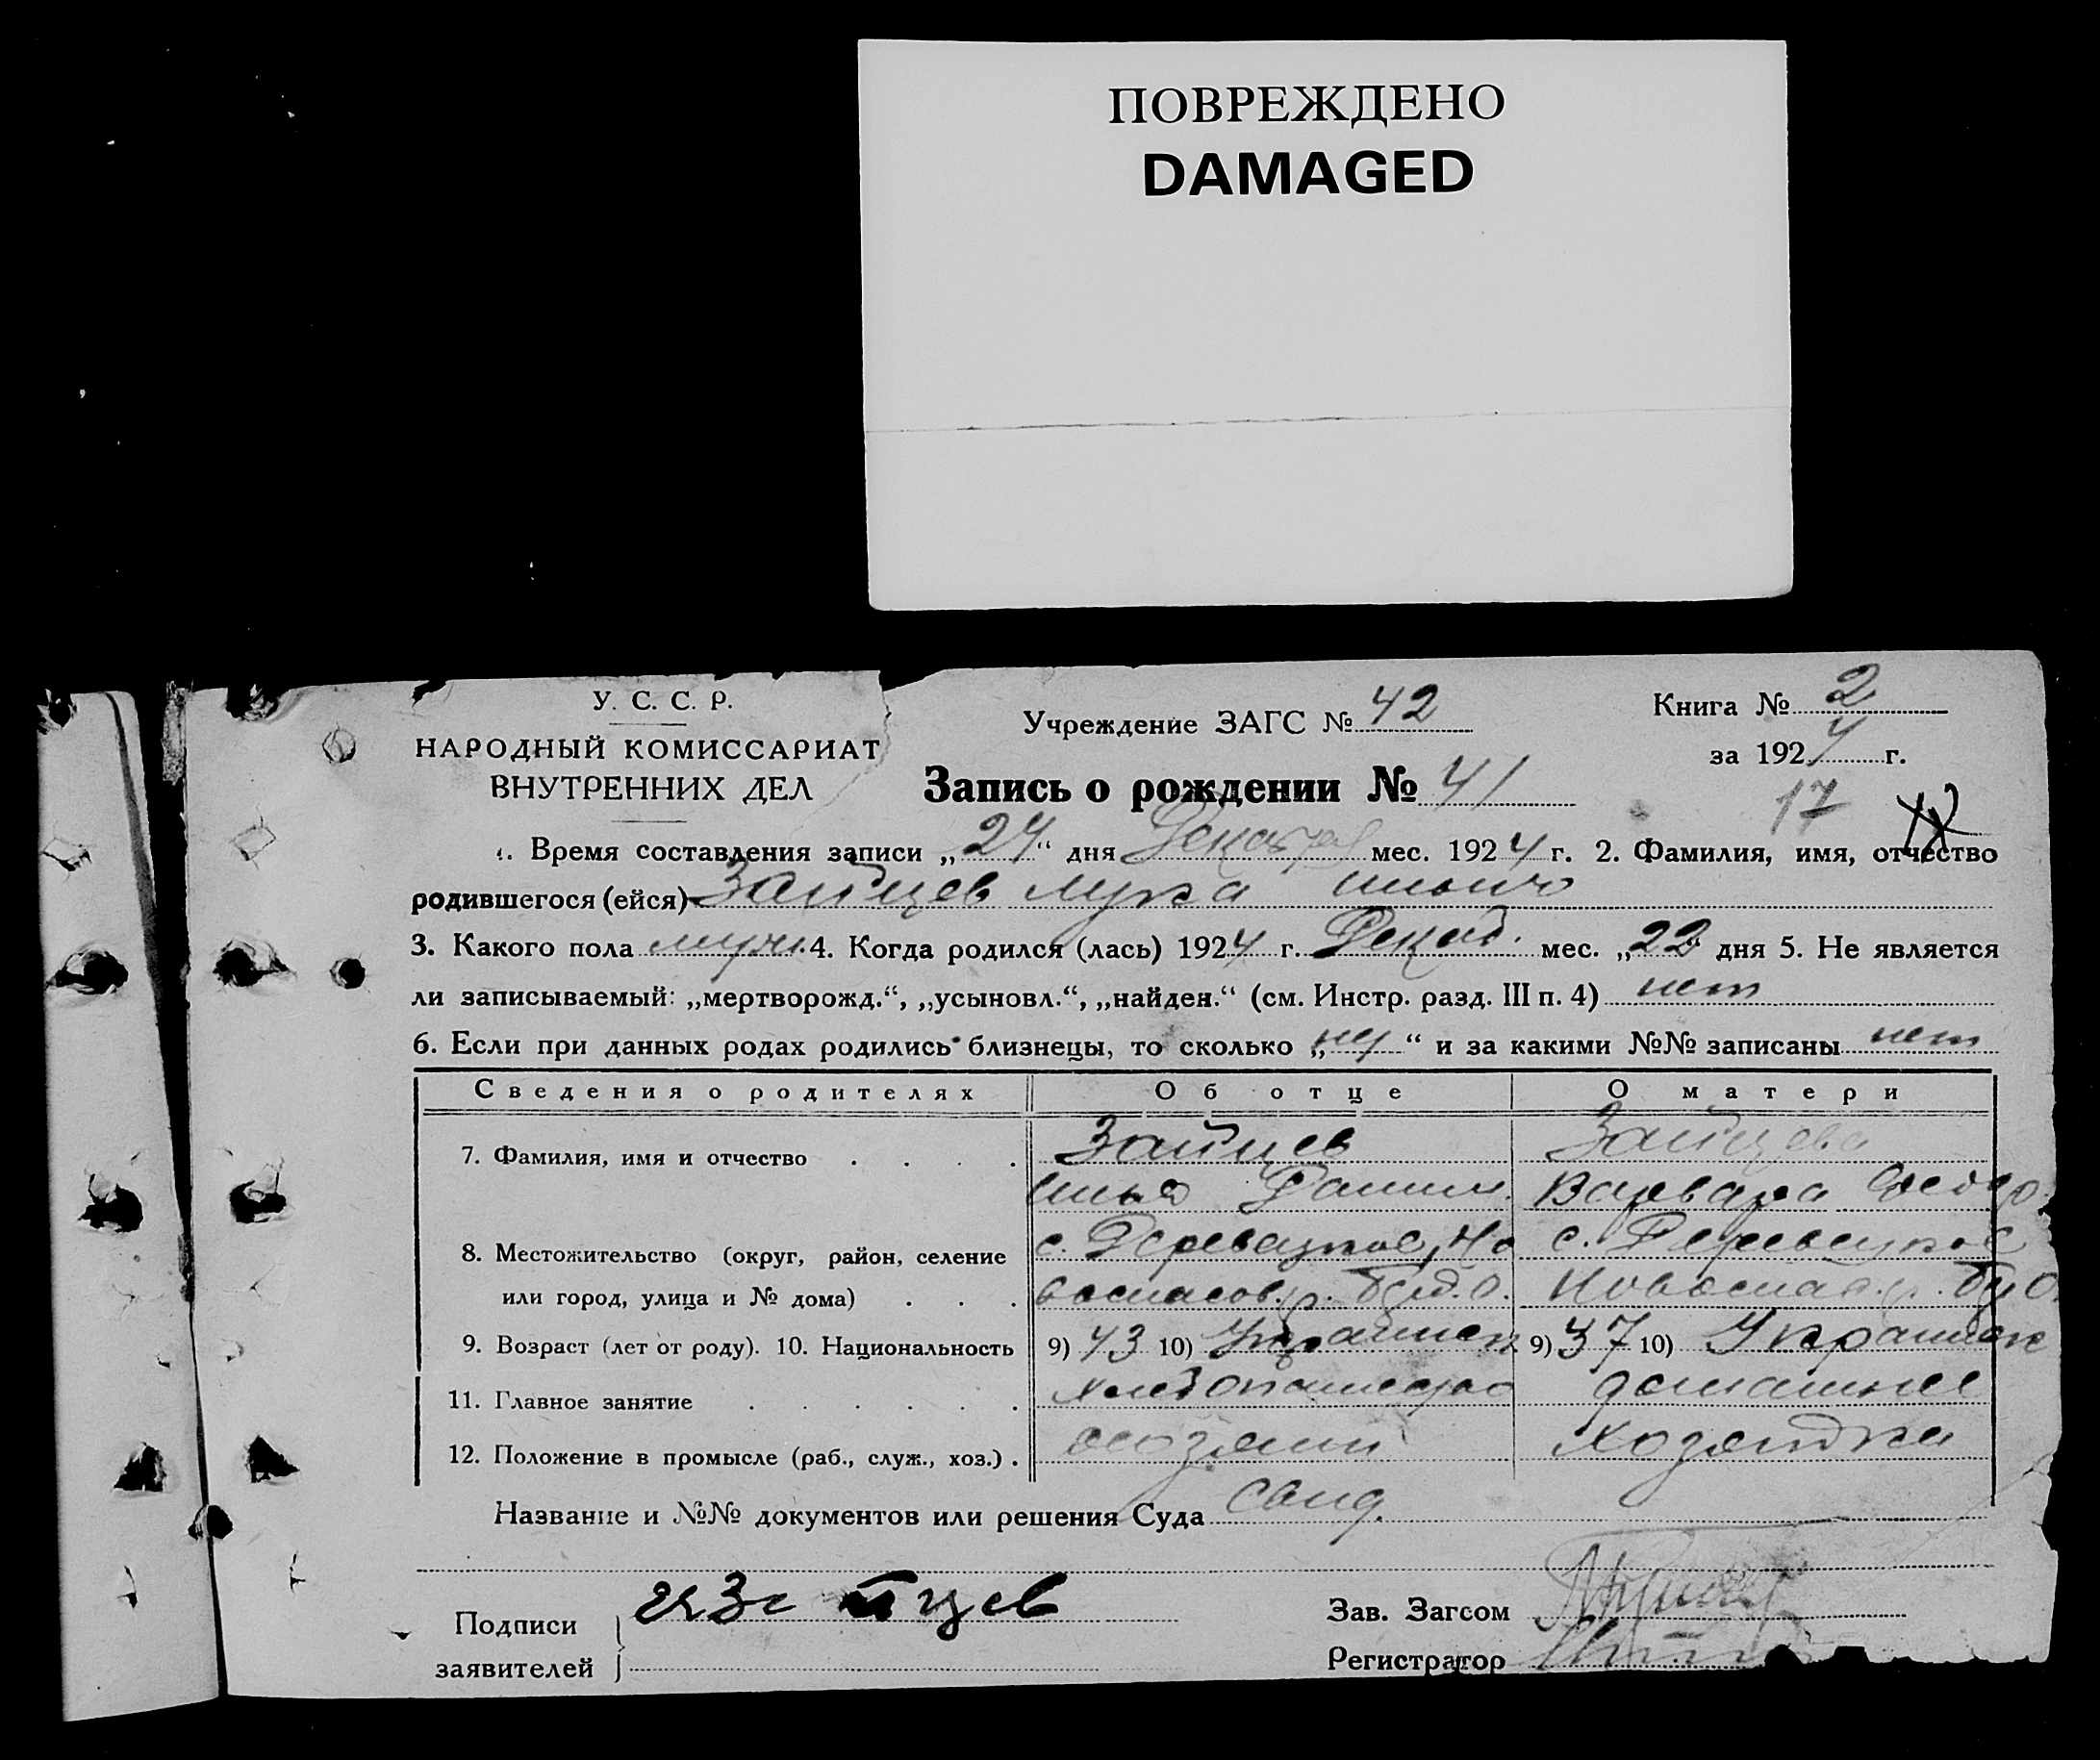 ПОВРЕЖДЕНО
DAMAGED
У. С. С. Р.
НАРОДНЫЙ КОМИССАРИАТ
ВНУТРЕННИХ ДЕЛ
Учреждение ЗАГС № 42
Книга № 2
за 1924 г.
Запись о рождении № 41
17
1. Время составления записи „24“ дня Декабря мес. 1924 г. 2. Фамилия, имя, отчество
родившегося (ейся) Зайцев Лука Ильич
3. Какого пола муж. 4. Когда родился (лась) 1924 г. Декаб. мес. „22 дня 5. Не является
ли записываемый: „мертворожд.“, „усыновл.“, „найден.“ (см. Инстр. разд. III п. 4) нет
6. Если при данных родах родились близнецы, то сколько „ “ и за какими №№ записаны нет
Сведения о родителях Об отце О матери
7. Фамилия, имя и отчество Зайцев Зайцева
Илья Варвара Федор.
8. Местожительство (округ, район, селение с. Но с.
или город, улица и № дома)
9. Возраст (лет от роду). 10. Национальность 9) 43 10) Украинец 9) 37 10)
11. Главное занятие домашнее
12. Положение в промысле (раб., служ., хоз.) хозяин хозяйка
Название и №№ документов или решения Суда
Подписи
заявителей
Зав. Загсом
Регистратор